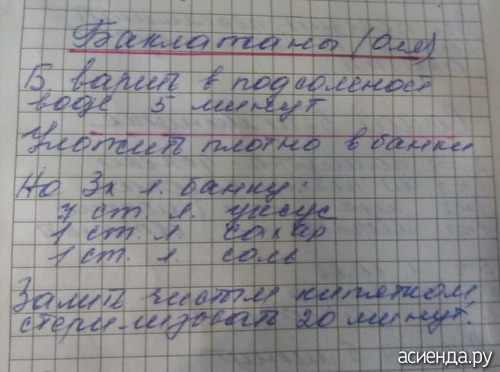 Баклажаны (Оля)
Б варить в подсоленост
воде 5 минут
Уложить плотно в банки
На 3х л. банку:
7 ст. л. уксус
1 ст. л. сахар
1 ст. л. соль
Залить чистым кипятком,
стерилизовать 20 минут.
асиенда.ру